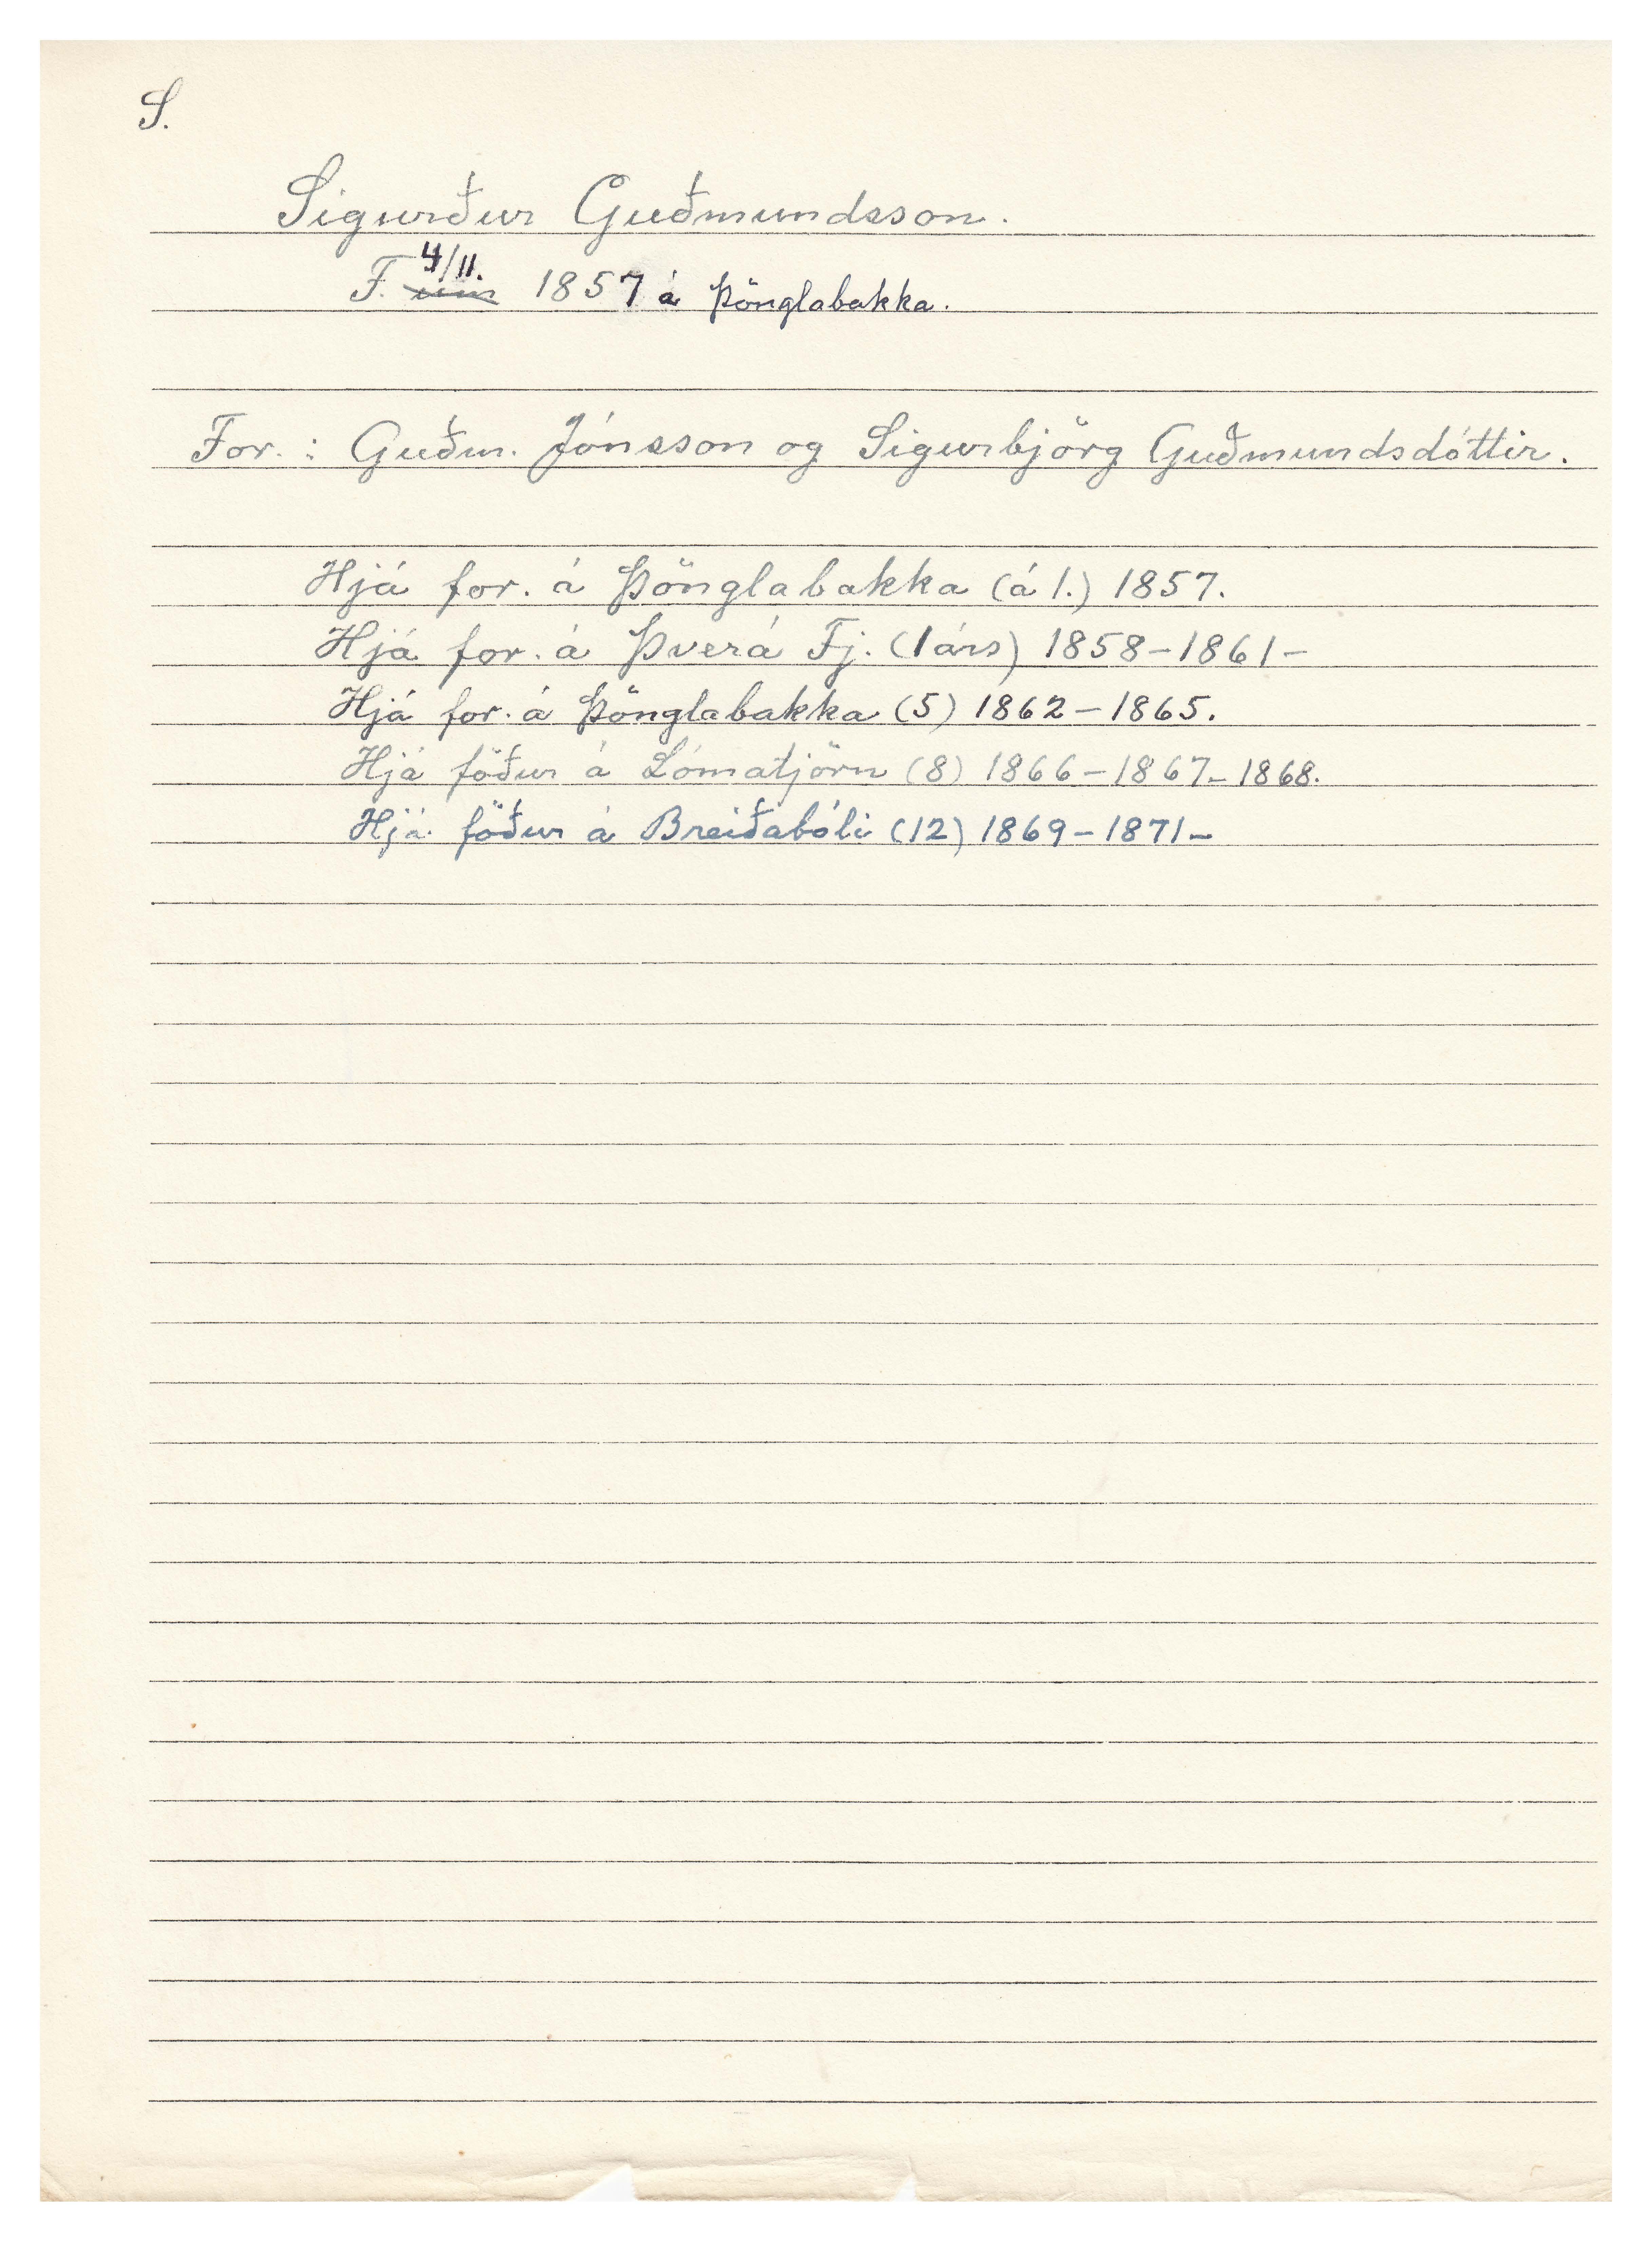 S.
Sigurður Guðmundsson.
F. 4/11. um 1857 á Þönglabakka.
For.: Guðm. Jónsson og Sigurbjörg Guðmundsdóttir.
Hjá for. á Þönglabakka (á 1.) 1857.
Hjá for. á Þverá Fj. (1 árs) 1858-1861-
Hjá for. á Þönglabakka (5) 1862-1865.
Hjá föður á Lómatjörn (8) 1866-1867-1868.
Hjá föður á Breiðabóli (12) 1869-1871-